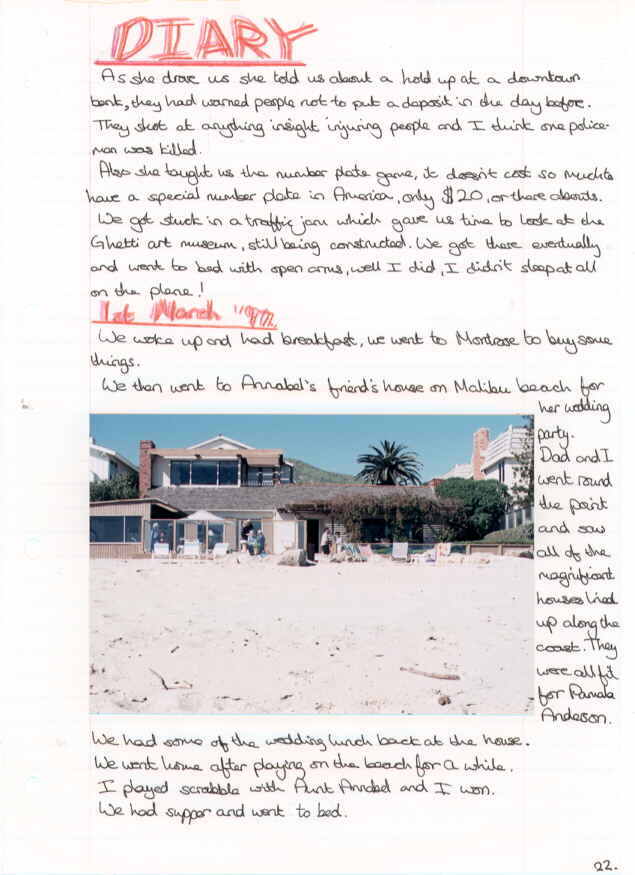 DIARY
As she drove us she told us about a hold up at a downtown
bank, they had warned people not to put a deposit in the day before.
They shot at anything insight injuring people and I think one police-
man was killed.
Also she taught us the number plate game, it doesn't cost so much to
have a special number plate in America, only $20, or there abouts.
We got stuck in a traffic jam which gave us time to look at the
Ghetti art museum, still being constructed. We got there eventually
and went to bed with open arms, well I did, I didn't sleep at all
on the plane!
1st March
We woke up and had breakfast, we went to Montrose to buy some
things.
We then went to Annabel's friend's house on Malibu beach for
her wedding
party.
Dad and I
went round
the point
and saw
all of the
magnificant
houses lined
up along the
coast. They
were all fit
for Pamala
Anderson.
We had some of the wedding lunch back at the house.
We went home after playing on the beach for a while.
I played scrabble with Aunt Annabel and I won.
We had supper and went to bed.
22.